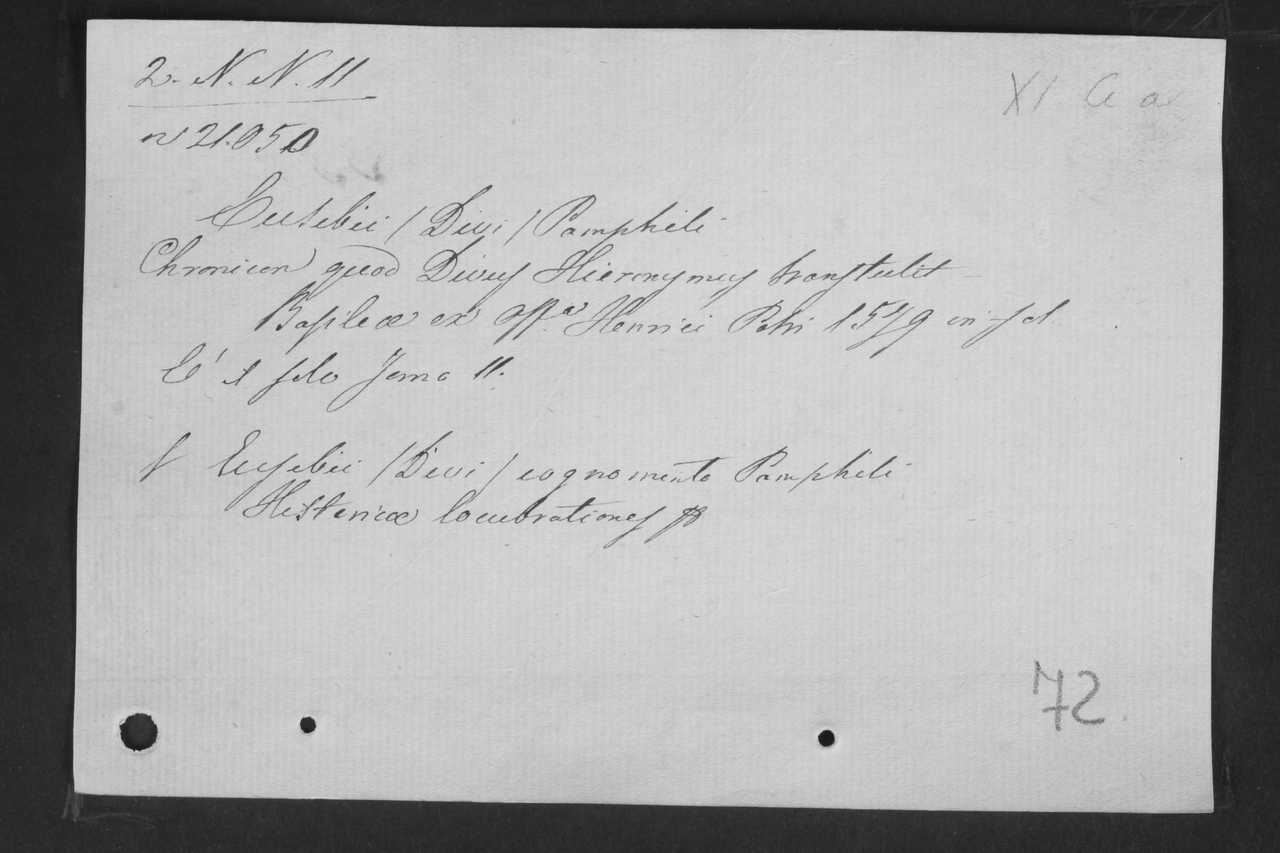 2. N. N. 11
XI C a
nº 21.050
Eusebii (Divi) Pamphili
Chronicon quod Divus Hieronymus transtulit
Basileæ ex offª Henrici Petri 1559 in-fol
É o folo Tomo 11.
V Eusebii (Divi) cognomento Pamphili
Historicæ locubrationes
72